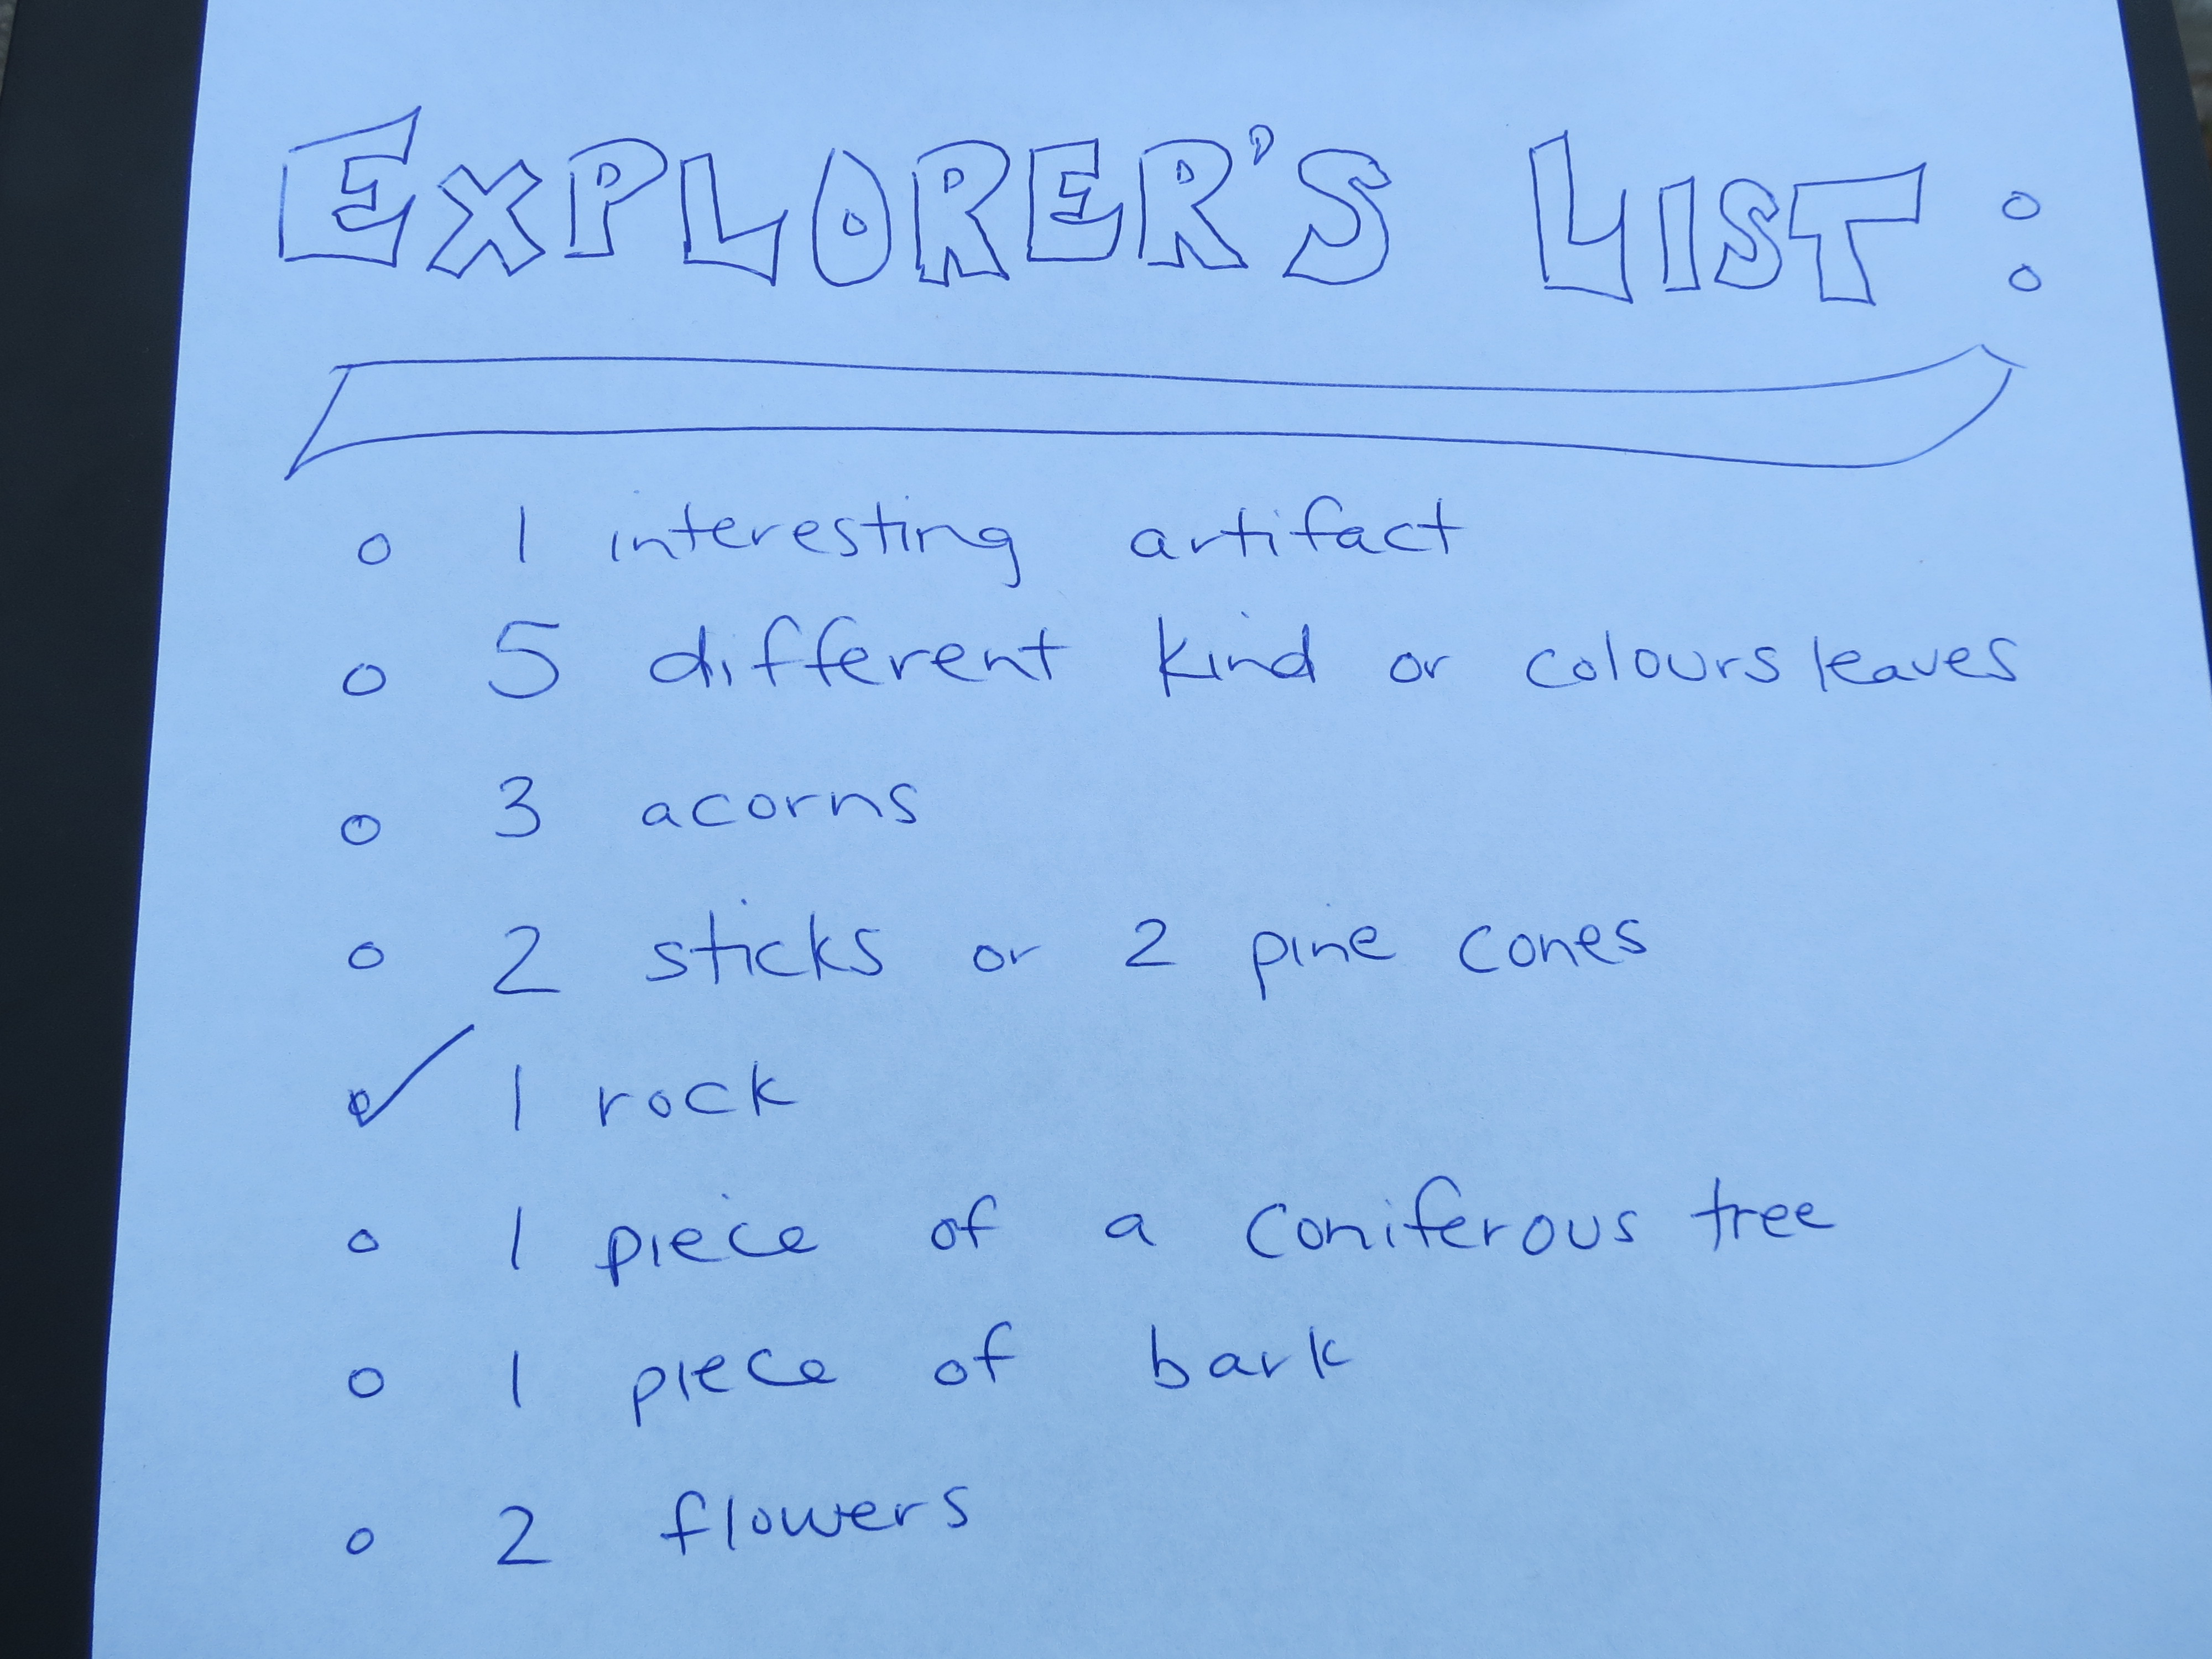 EXPLORER'S LIST:
o 1 interesting artifact
o 5 different kind or colours leaves
o 3 acorns
o 2 sticks or 2 pine cones
✓ 1 rock
o 1 piece of a coniferous tree
o 1 piece of bark
o 2 flowers